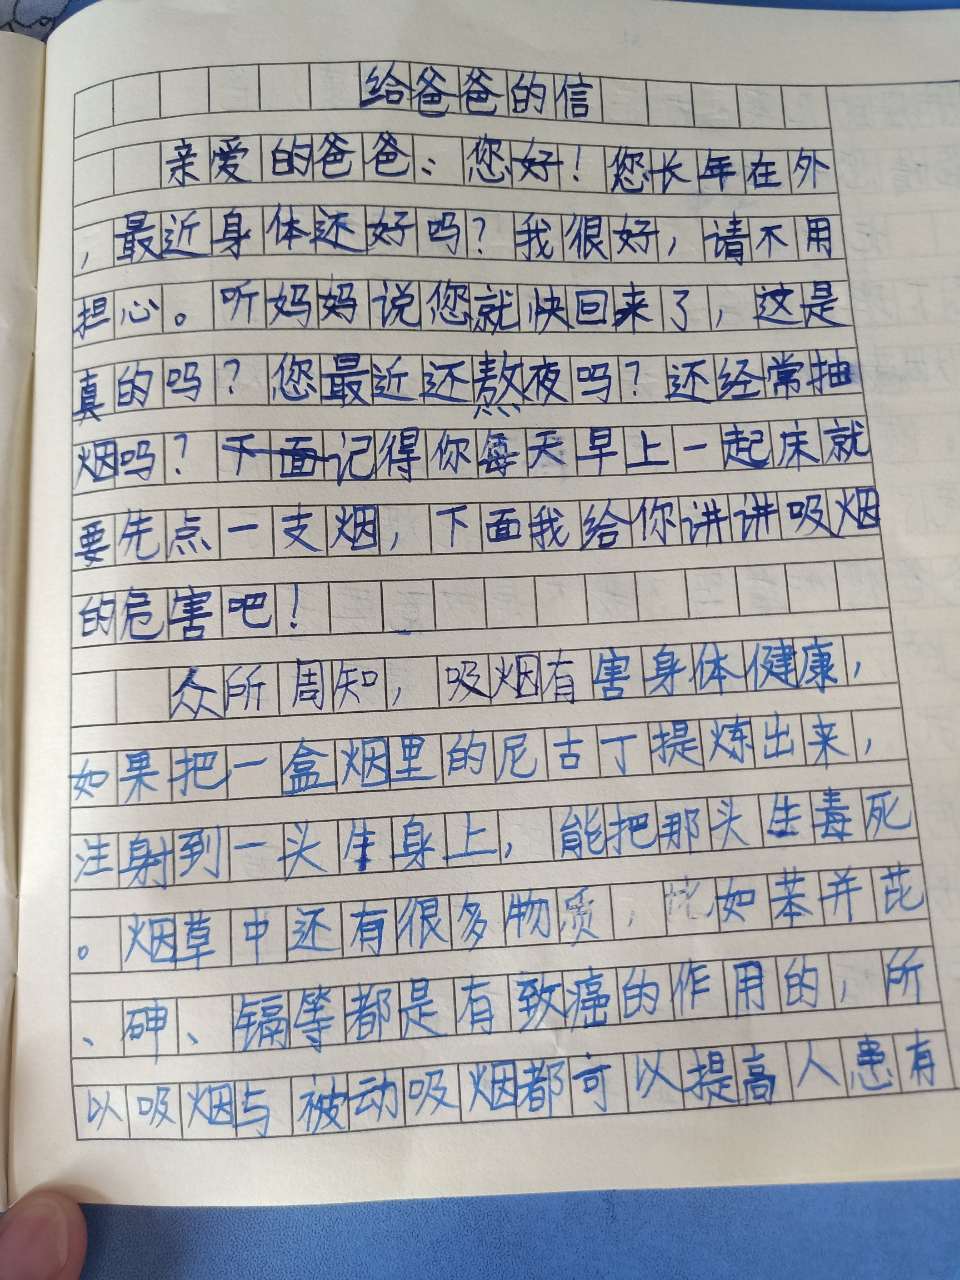 给爸爸的信
亲爱的爸爸：您好！您长年在外
，最近身体还好吗？我很好，请不用
担心。听妈妈说您就快回来了，这是
真的吗？您最近还熬夜吗？还经常抽
烟吗？记得你每天早上一起床就
要先点一支烟，下面我给你讲讲吸烟
的危害吧！
众所周知，吸烟有害身体健康，
如果把一盒烟里的尼古丁提炼出来，
注射到一头牛身上，能把那头牛毒死
。烟草中还有很多物质，比如苯并芘
、砷、镉等都是有致癌的作用的，所
以吸烟与被动吸烟都可以提高人患有